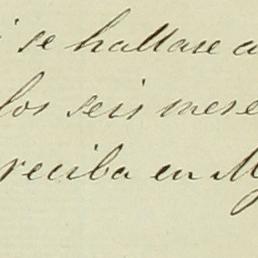 i se hallase a
los seis mese
reciba en M